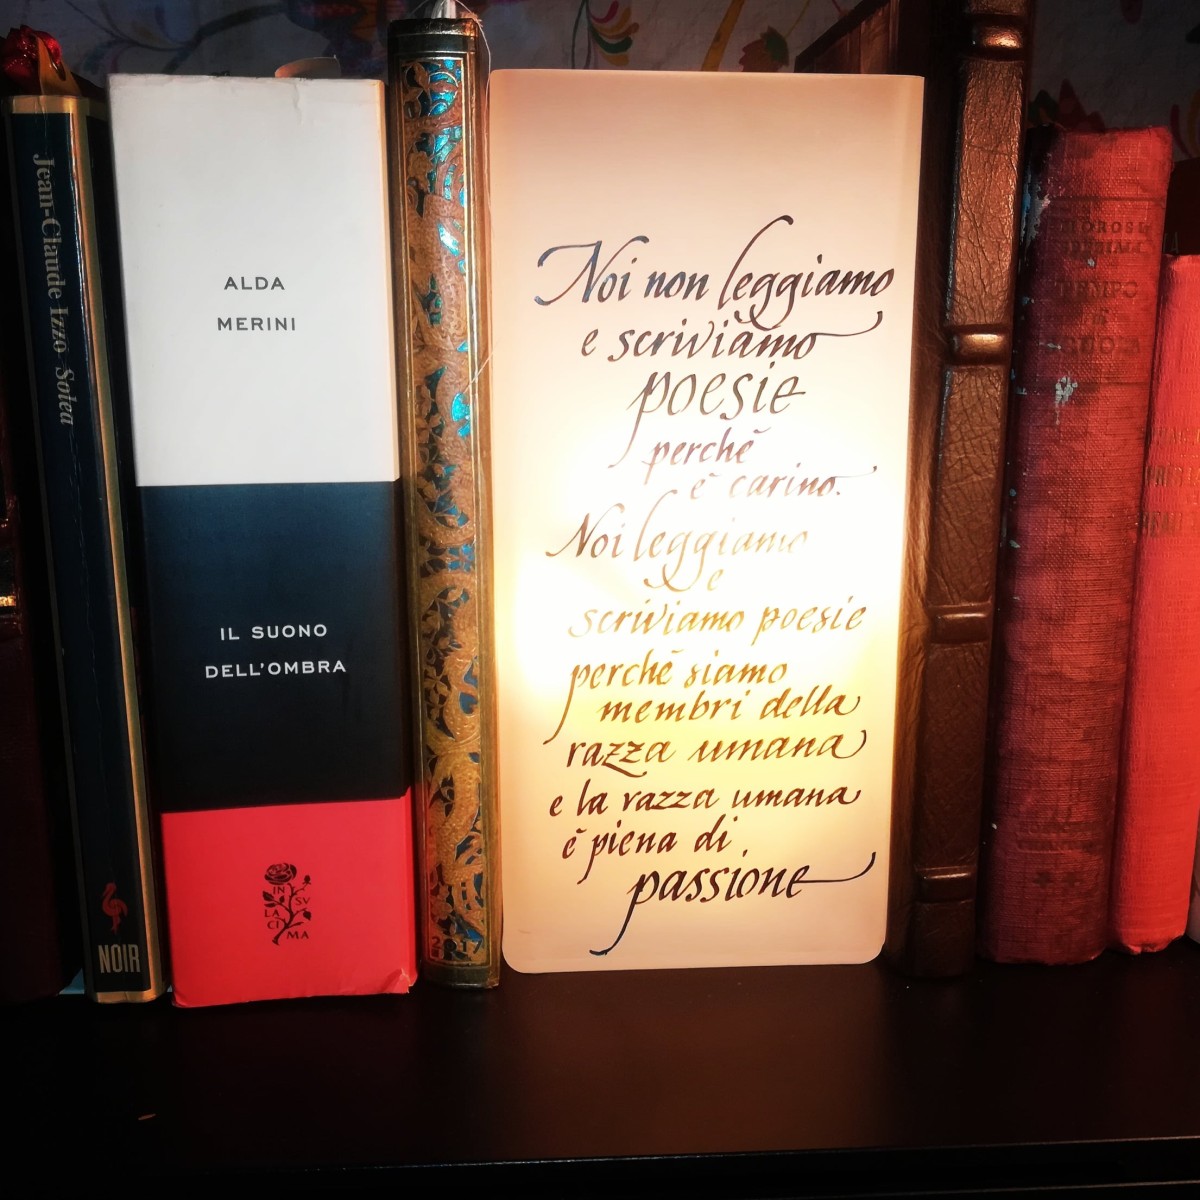 Jean-Claude Izzo Solea
NOIR
ALDA
MERINI
IL SUONO
DELL'OMBRA
IN
LA
SV
CI
MA
2017
Noi non leggiamo
e scriviamo
poesie
perchè
è carino.
Noi leggiamo
e
scriviamo poesie
perchè siamo
membri della
razza umana
e la razza umana
è piena di
passione
TEMPO